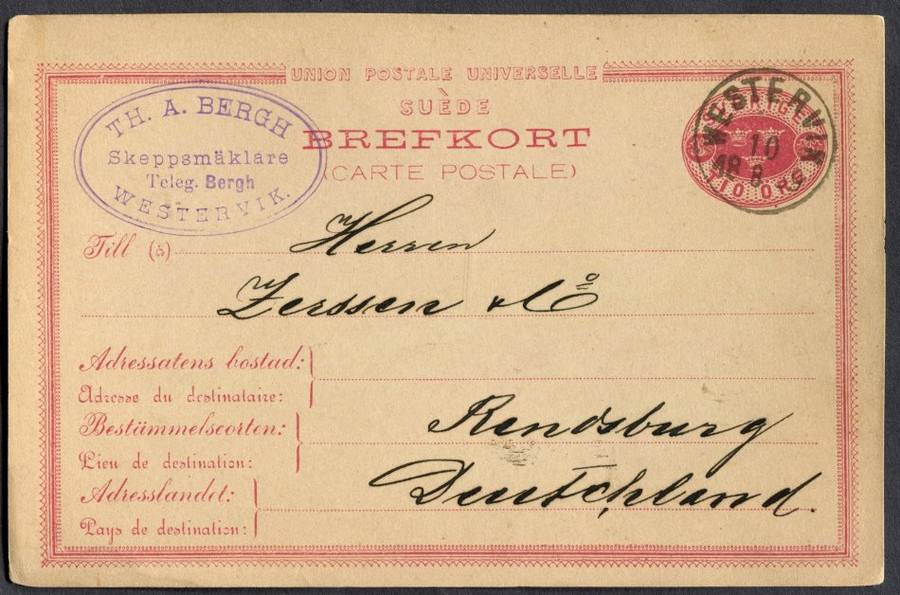 UNION POSTALE UNIVERSELLE
SUÈDE
BREFKORT
(CARTE POSTALE)
TH. A. BERGH
Skeppsmäklare
Teleg. Bergh
WESTERVIK.
WESTERVIK
10
8
TIO ÖRE
Till (à)
Herren
Zerssen & Co
Adressatens bostad:
Adresse du destinataire:
Bestämmelseorten:
Rendsburg
Lieu de destination:
Adresslandet:
Deutschland.
Pays de destination: